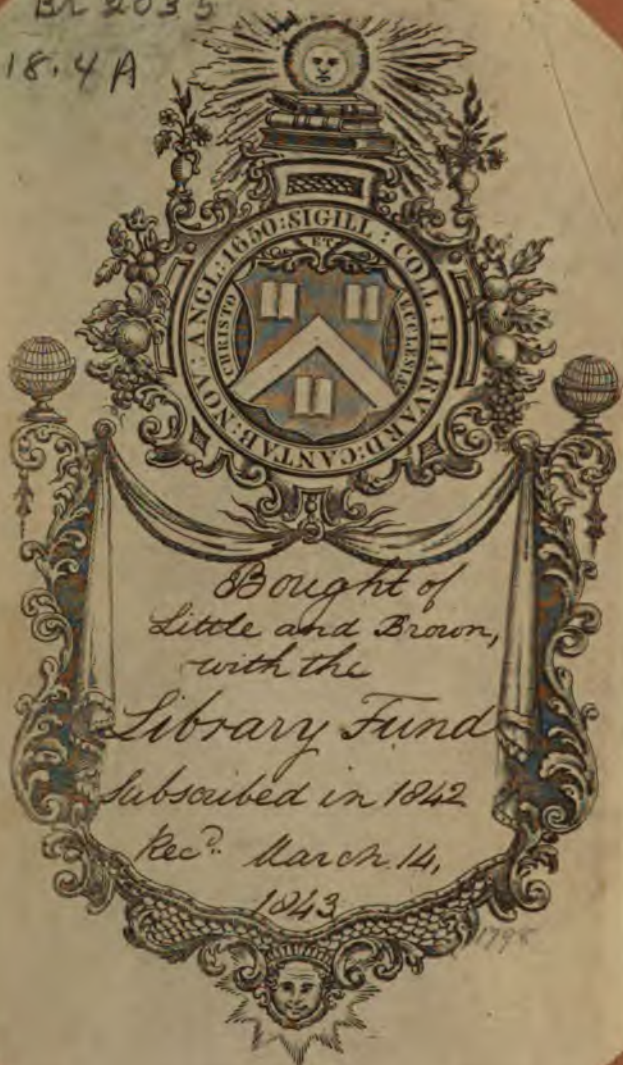 Br 2035
18.4 A
SIGILL : COLL : HARVARD : CANTAB : NOV : ANGL : 1650 :
CHRISTO ET ECCLESIÆ
Bought of
Little and Brown,
with the
Library Fund
Subscribed in 1842
Recd. March 14,
1843